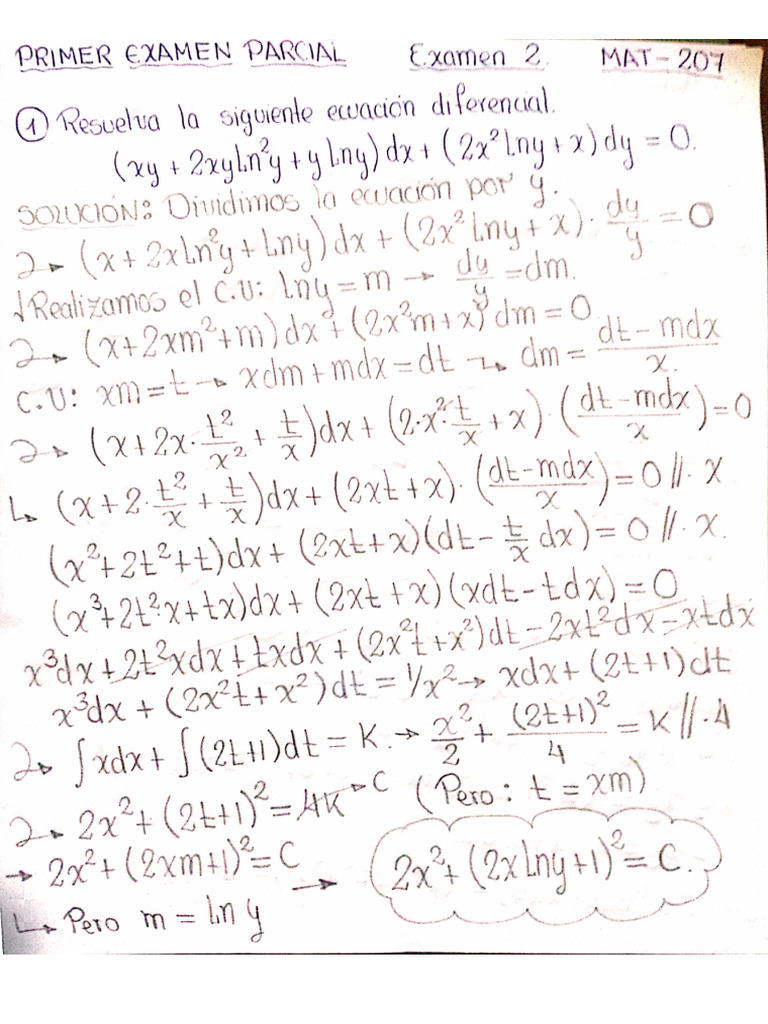 PRIMER EXAMEN PARCIAL Examen 2. MAT-207
① Resuelva la siguiente ecuación diferencial.
(xy + 2xyln²y + y lny)dx + (2x² lny + x)dy = 0.
SOLUCIÓN: Dividimos la ecuación por y.
→ (x + 2xln²y + lny)dx + (2x² lny + x) · dy/y = 0
Realizamos el C.U: lny = m → dy/y = dm.
→ (x + 2xm² + m)dx + (2x²m + x)dm = 0
C.U: xm = t → xdm + mdx = dt → dm = (dt - mdx)/x.
→ (x + 2x · t²/x² + t/x)dx + (2·x²·t/x + x) · ((dt - mdx)/x) = 0
↳ (x + 2·t²/x + t/x)dx + (2xt + x) · ((dt - mdx)/x) = 0 // · x
(x² + 2t² + t)dx + (2xt + x)(dt - t/x dx) = 0 // · x.
(x³ + 2t²·x + tx)dx + (2xt + x)(xdt - tdx) = 0
x³dx + 2t²xdx + txdx + (2x²t + x²)dt - 2xt²dx - xtdx
x³dx + (2x²t + x²)dt = 1/x² → xdx + (2t+1)dt
→ ∫xdx + ∫(2t+1)dt = K. → x²/2 + (2t+1)²/4 = K // · 4
→ 2x² + (2t+1)² = 4K → C (Pero: t = xm)
→ 2x² + (2xm+1)² = C → 2x² + (2x lny + 1)² = C.
↳ Pero m = ln y